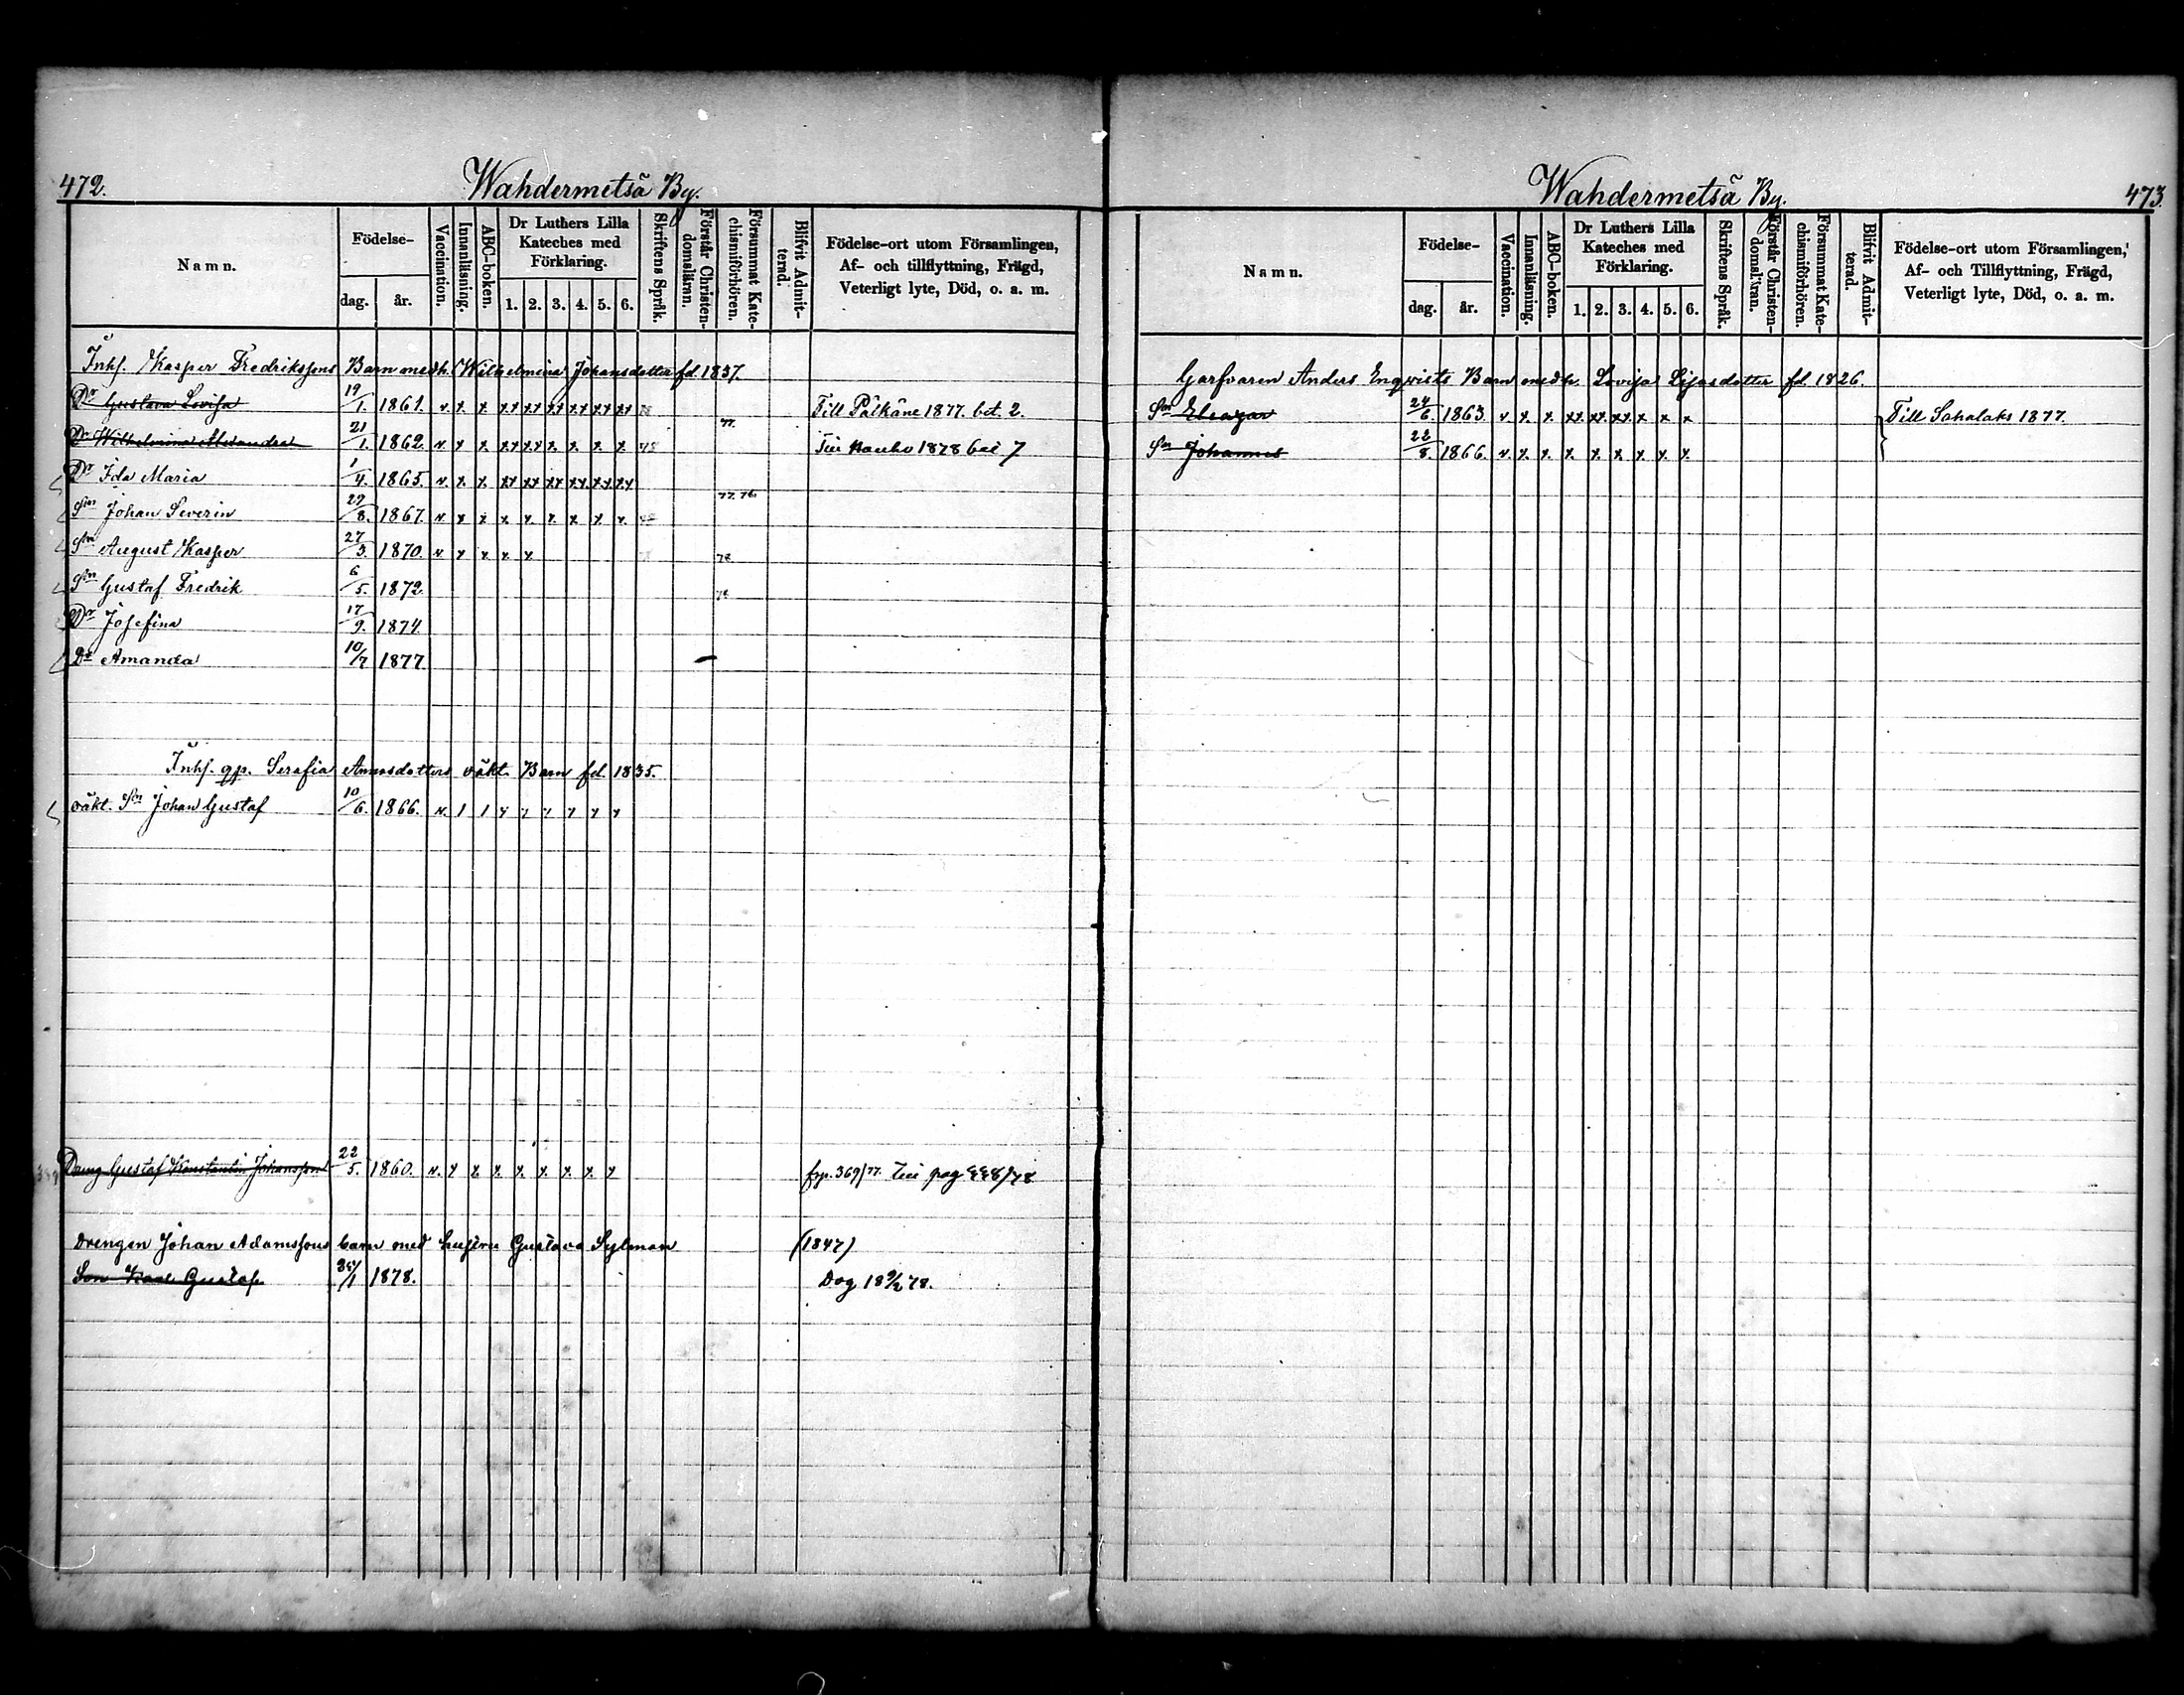 472.
Wahdermetsä By.
Namn.
Födelse-
dag.
år.
Vaccination.
Innanläsning.
ABC-boken.
Dr Luthers Lilla
Kateches med
Förklaring.
1. 2. 3. 4. 5. 6.
Skriftens Språk.
Förstår Christen-
domsläran.
Försummat Kate-
chismiförhören.
Blifvit Admit-
terad.
Födelse-ort utom Församlingen,
Af- och tillflyttning, Frägd,
Veterligt lyte, Död, o. a. m.
Inhs. Kasper Fredrikssons Barn med h. Wilhelmina Johansdotter fd. 1837.
Dr Gustava Lovisa 19/1. 1861. v. x. x xx xx xx xx xx xx Till Pälkäne 1877. bet. 2.
Dr Wilhelmina 21/1. 1862. v x x. xx xx x. x. x. x 77. 1878 7
Dr Ida Maria 1/4. 1865. v. x. x. xx xx xx xx xx xx
Son Johan Severin 29/8. 1867. v. x x. x. x. x. x. x. x. 77. 78
Son August Kasper 27/3. 1870. v. x x. x. x 78
Son Gustaf Fredrik 6/5. 1872. 78
Dr Josefina 17/9. 1874
Dr Amanda 10/7 1877
Inhs. qp. Serafia Annasdotters oäkt. Barn fd. 1835.
oäkt. Son Johan Gustaf 10/6. 1866. v. 1 1 x x x x x x
Dreng Gustaf Konstantin Johansson 22/5. 1860. v. x x. x. x. x. x. x. x frp. 369/77. pag 448/78
Drengen Johan Adamssons barn med hustru Gustava Sylman (1847)
Son Gustaf 1878. Dog 18 9/2 78.
Wahdermetsä By.
473.
Namn.
Födelse-
dag.
år.
Vaccination.
Innanläsning.
ABC-boken.
Dr Luthers Lilla
Kateches med
Förklaring.
1. 2. 3. 4. 5. 6.
Skriftens Språk.
Förstår Christen-
domsläran.
Försummat Kate-
chismiförhören.
Blifvit Admit-
terad.
Födelse-ort utom Församlingen,
Af- och Tillflyttning, Frägd,
Veterligt lyte, Död, o. a. m.
Garfvaren Anders Enqvists Barn med h. Lovisa fd. 1826.
Son Eleazar 24/6. 1863. v. x. x. xx xx. xx x x x Till Sahalaks 1877.
Son Johannes 22/8. 1866. v. x. x. x. x. x. x. x. x